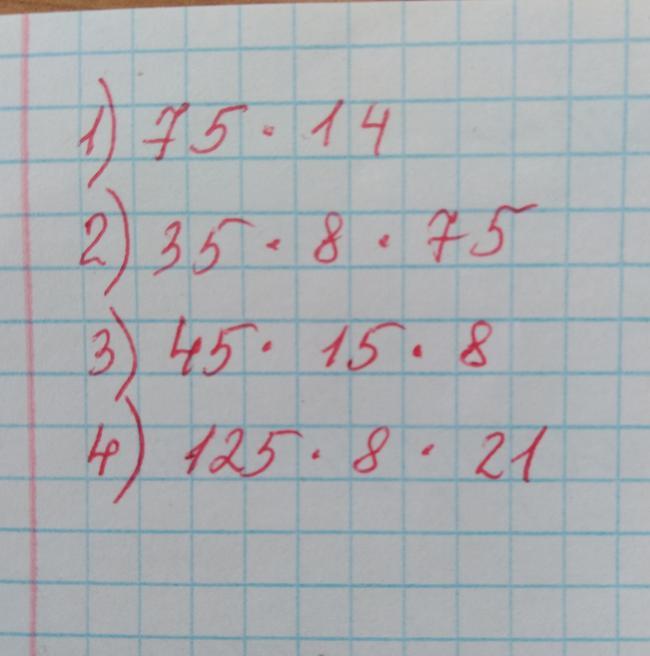 1) 75 · 14
2) 35 · 8 · 75
3) 45 · 15 · 8
4) 125 · 8 · 21